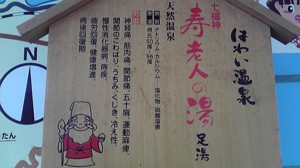 はわい温泉
七福神
寿老人の湯
足湯
天然温泉
ナトリウム・カルシウム
塩化物・硫酸塩温泉
神経痛、筋肉痛、関節痛、五十肩、運動麻痺、
関節のこわばり、うちみ、くじき、冷え性、
慢性消化器病、痔疾、
疲労回復、健康増進、
病後回復期